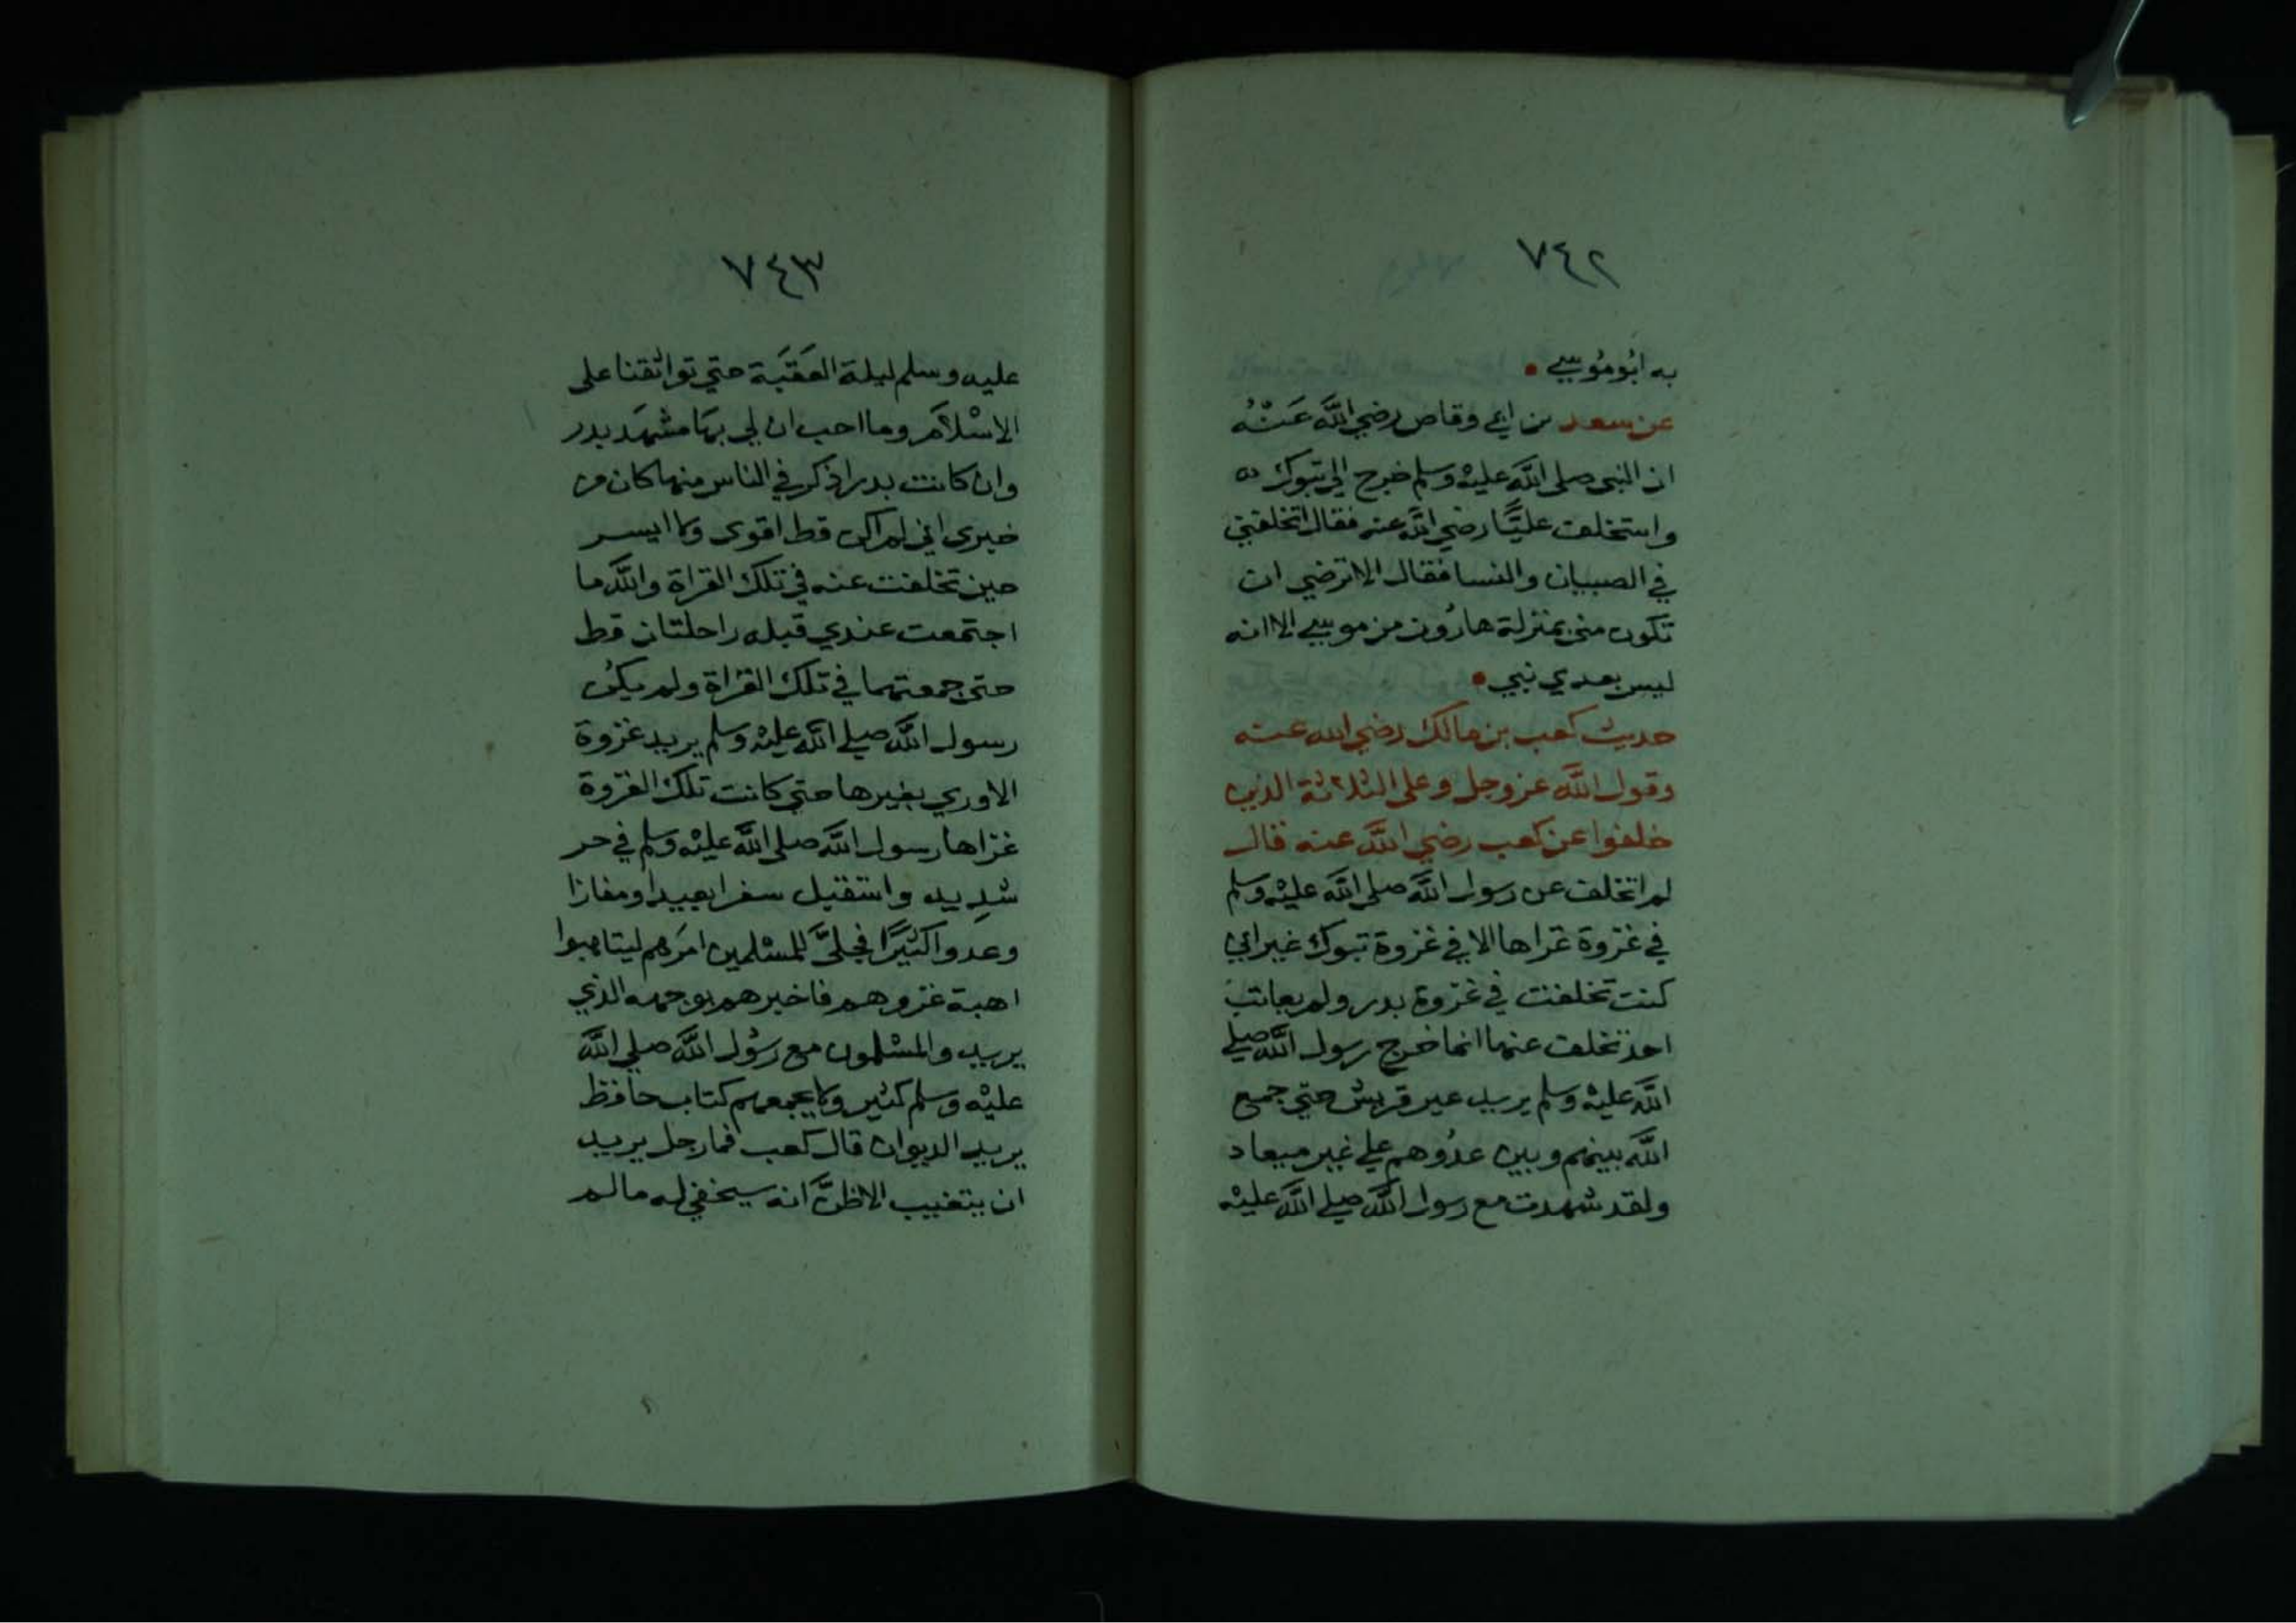 ٧٤٢
به ابُو مُوسي
عن سعد بن ابي وقاص رضي الله عَنْهُ
ان النبي صلى الله عليْه وسلم خرج الي تبوك
واستخلف عليًّا رضي الله عنه فقال اتخلفني
في الصبيان والنسا فقال الا ترضي ان
تكون مني بمنزلة هارُون من موسي الا انه
ليس بعدي نبي
حديث كعب بن مالك رضي الله عنه
وقول الله عز وجل وعلى الثلاثة الذين
خلفوا عن كعب رضي الله عنه قال
لم اتخلف عن رسول الله صلى الله عليْه وسلم
في غزوة غزاها الا في غزوة تبوك غير اني
كنت تخلفت في غزوة بدر ولم يعاتب
احد تخلف عنها انما خرج رسول الله صلي
الله عليْه وسلم يريد عير قريش حتي جمع
الله بينهم وبين عدُوهم علي غير ميعاد
ولقد شهدت مع رسول الله صلي الله عليْه
٧٤٣
عليه وسلم ليلة العَقَبَة حتي تواثقنا على
الاسْلاَم وما احب ان لي بهَا مشهَد بدر
وان كانت بدر اذكر في الناس منها كان من
خبري اني لم اكن قط اقوى ولا ايسر
حين تخلفت عنه في تلك الغزاة والله ما
اجتمعت عندي قبله راحلتان قط
حتى جمعتهما في تلك الغزاة ولم يكنُ
رسول الله صلي الله عليْه وسلم يريد غزوة
الا وري بغيرها حتي كانت تلك الغزوة
غزاها رسول الله صلى الله عليْه وسلم في حر
شدِيد واستقبل سفرا بعيدا ومفازا
وعدوا كثيرًا فجلىَّ للمسْلمين امرَهم ليتاهبوا
اهبة غزوهم فاخبرهم بوجهه الذي
يريد والمسْلمون مع رسُول الله صلي الله
عليْه وسلم كثير ولا يجمعهم كتاب حافظ
يريد الديوان قال كعب فما رجل يريد
ان يتغيب الا ظنَّ انه سيخفي له ما لم